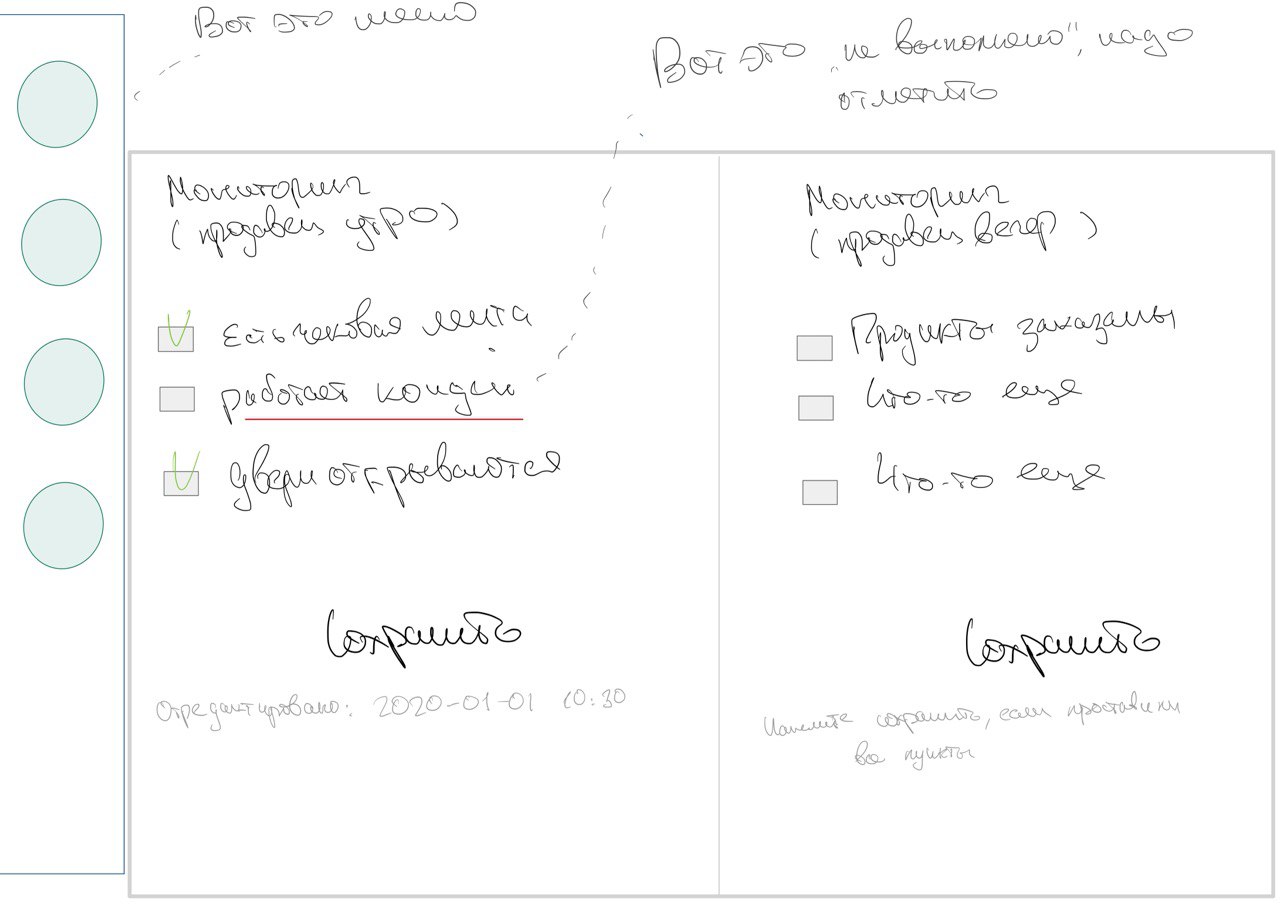 Вот это меню
Вот это „не выполнено“, надо
отметить
Мониторинг
(продавец утро)
Есть чековая лента
работает кондей
двери открываются
Сохранить
Отредактировано: 2020-01-01 10:30
Мониторинг
(продавец вечер)
Продукты заказаны
Что-то еще
Что-то еще
Сохранить
Нажмите сохранить, если проставили
все пункты